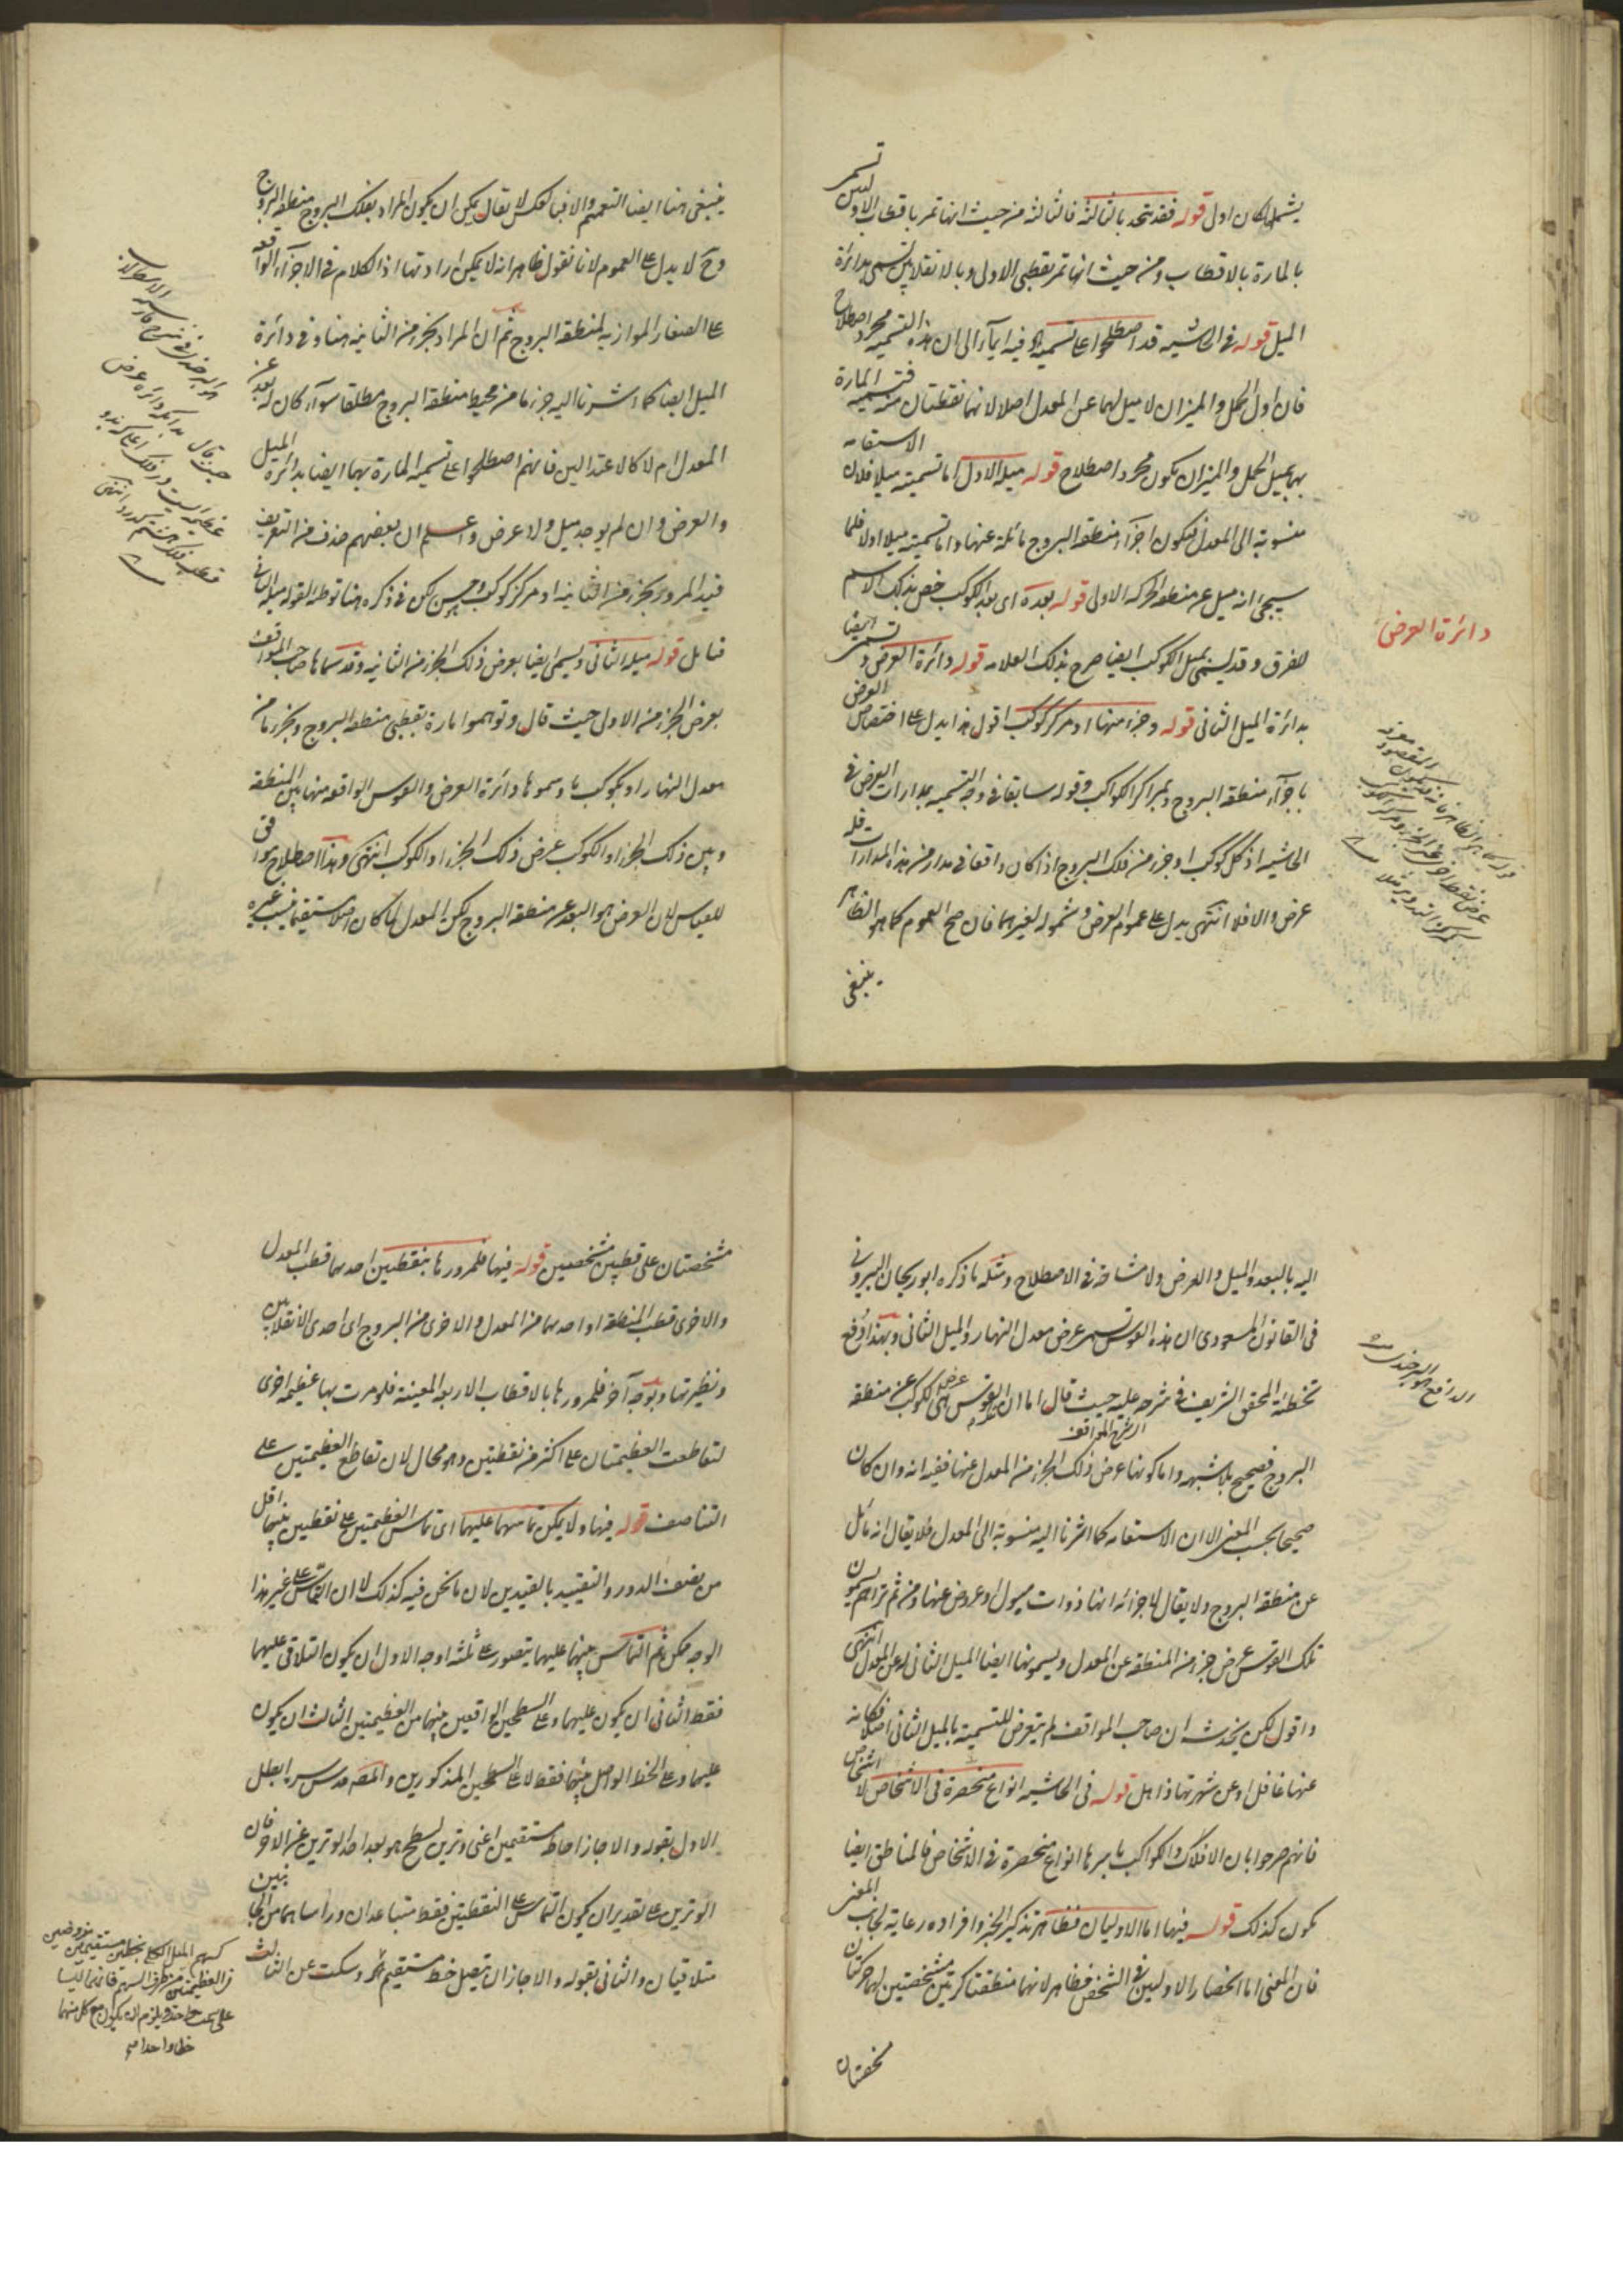 يشمل المكان اول قوله فقد تتحد بالثالثة فالثالثة من حيث انها تمر باقطاب الاوليين تسمى
بالمارة بالاقطاب ومن حيث انها تمر بقطبى الاول وبالانقلابين تسمى بدائرة
الميل قوله فى الحاشيه قد اصطلحوا على تسميه اه فيه ايمآء الى ان هذه التسميه مجرد اصطلاح
فان اول الحمل والميزان لا ميل لهما عن المعدل اصلا لانهما نقطتان منه فتسميه المارة
بهما بميل الحمل والميزان يكون مجرد اصطلاح قوله ميله الاول اما تسميته ميلا فلان الاستقامه
منسوبة الى المعدل فتكون اجزآء منطقه البروج مائلة عنها واما تسميته ميلا اولا فلما
سيجئ انه ميل عن منطقه الحركه الاولى قوله بعده اى بعد الكوكب خص بذلك الاسم
للفرق وقد يسمى بميل الكوكب ايضا صرح بذلك العلامه قوله دائرة العرض وتسمى ايضا
بدائرة الميل الثانى قوله وجزء منها او مركز كوكب اقول هذا يدل على اختصاص العرض
باجزآء منطقه البروج وبمراكز الكواكب وقوله سابقا فى وجه التسميه بمدارات العرض فى
الحاشيه اذ كل كوكب او جزء من فلك البروج اذا كان واقعا فى مدار من هذه المدارات فله
عرض والا فلا انتهى يدل على عموم العرض وشموله لغيرهما فان صح العموم كما هو الظاهر
ينبغى
دائرة العرض
فينبغى هنا ايضا التعميم والا فبالعكس لا يقال يمكن ان يكون المراد بفلك البروج منطقه البروج
وح لا يدل على العموم لانا نقول ظاهر انه لا يمكن ارادتها اذ الكلام فى الاجزآء الواقعه
على الصغار الموازيه لمنطقه البروج ثم ان المراد بجزء من الثانيه هنا وفى دائرة
الميل ايضا كما اشرنا اليه جزء ما من محيط منطقة البروج مطلقا سوآء كان له بعد عن
المعدل ام لا كالاعتدالين فانهم اصطلحوا على تسميه المارة بهما ايضا بدائرة الميل
والعرض وان لم يوجد ميل ولا عرض واعلم ان بعضهم حذف من التعريف
قيد المرور بجزء من الثانيه او مركز كوكب وهو حسن لكن فى ذكره هنا توطئه لقوله ميله الثانى
فتامل قوله ميله الثانى ويسمى ايضا بعرض ذلك الجزء من الثانيه وقد سماها صاحب المواقف
بعرض الجزء من الاول حيث قال وتوهموا مارة بقطبى منطقه البروج وبجزء ما من
معدل النهار او بكوكب ما وسموها دائرة العرض والقوس الواقعه منها بين المنطقة
وبين ذلك الجزء او الكوكب عرض ذلك الجزء او الكوكب انتهى وهذا اصطلاح موافق
للقياس لان العرض هو البعد عن منطقه البروج لكن المعدل لما كان اصلا مستقيما ينسب غيره
اليه بالبعد والميل والعرض ولا مشاحة فى الاصطلاح ومثله ما ذكره ابو ريحان البيرونى
فى القانون المسعودى ان هذه القوس تسمى عرض معدل النهار والميل الثانى وبهذا دفع
تخطئة المحقق الشريف فى شرحه عليه حيث قال اما ان القوس هى عرض الكوكب عن منطقة
اى شرح المواقف
البروج فصحيح بلا شبهه واما كونها عرض ذلك الجزء من المعدل عنها ففيه انه وان كان
صحيحا بحسب المعنى الا ان الاستقامه كما اشرنا اليه منسوبة الى المعدل فلا يقال انه مائل
عن منطقة البروج ولا يقال لاجزائه انها ذوات ميول او عروض عنها ومن ثم تراهم يسمون
تلك القوس عرض جزء من المنطقه عن المعدل ويسمونها ايضا الميل الثانى له عن المعدل انتهى
واقول لكن يخدشه ان صاحب المواقف لم يتعرض للتسمية بالميل الثانى اصلا فكانه
عنها غافل او عن شهرتها ذاهل قوله فى الحاشيه انواع منحصرة فى الاشخاص لا اشخاص
فانهم صرحوا بان الافلاك والكواكب باسرها انواع منحصرة فى الاشخاص فالمناطق ايضا
تكون كذلك قوله فيها اما الاوليان فظاهر تذكير الخبر وافراده رعاية لجانب المعنى
فان المعنى اما انحصار الاوليين فى الشخص فظاهر لانهما منطقتا كرتين مشخصتين لهما حركتان
مشخصتان
الدافع هو البرجندى
مشخصتان على قطبين مشخصين قوله فيها فلمرورها بنقطتين احدهما قطب المعدل
والاخرى قطب المنطقه او احدهما من المعدل والاخرى من البروج اى احدى الانقلابين
ونظيرتها وبوجه آخر فلمرورها بالاقطاب الاربعه المعينة فلو مرت بها عظيمه اخرى
لتقاطعت العظيمتان على اكثر من نقطتين وهو محال لان تقاطع العظيمتين على
التناصف قوله فيها ولا يمكن تماسهما عليهما اى تماس العظيمتين على نقطتين بينهما اقل
من نصف الدور والتقييد بالقيدين لان ما نحن فيه كذلك لا ان التماس على غير هذا
الوجه ممكن ثم التماس بينهما عليهما يتصور على ثلثه اوجه الاول ان يكون التلاقى عليهما
فقط الثانى ان يكون عليهما وعلى السطحين الواقعين بينهما من العظيمتين الثالث ان يكون
عليهما وعلى الخط الواصل بينهما فقط لا على السطحين المذكورين والمصه قدس سره ابطل
الاول بقوله والا جاز احاطة مستقيمين اعنى وترين بسطح هو بعد احد الوترين عن الاخر فان
الوترين على تقدير ان يكون التماس على النقطتين فقط متباعدان ورأساهما من الجانبين
متلاقيان والثانى بقوله والا جاز ان يتصل خط مستقيم اه وسكت عن الثالث
خطا واحدا صح